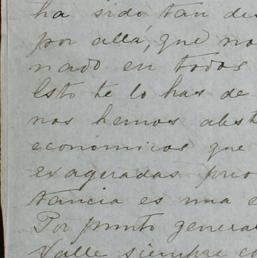 ha sido tan des
por allá, que no
nado en todos
Esto te lo has de
nos hemos abst
económicos que
exageradas prio
tancia es una e
Por punto general
Valle siempre co